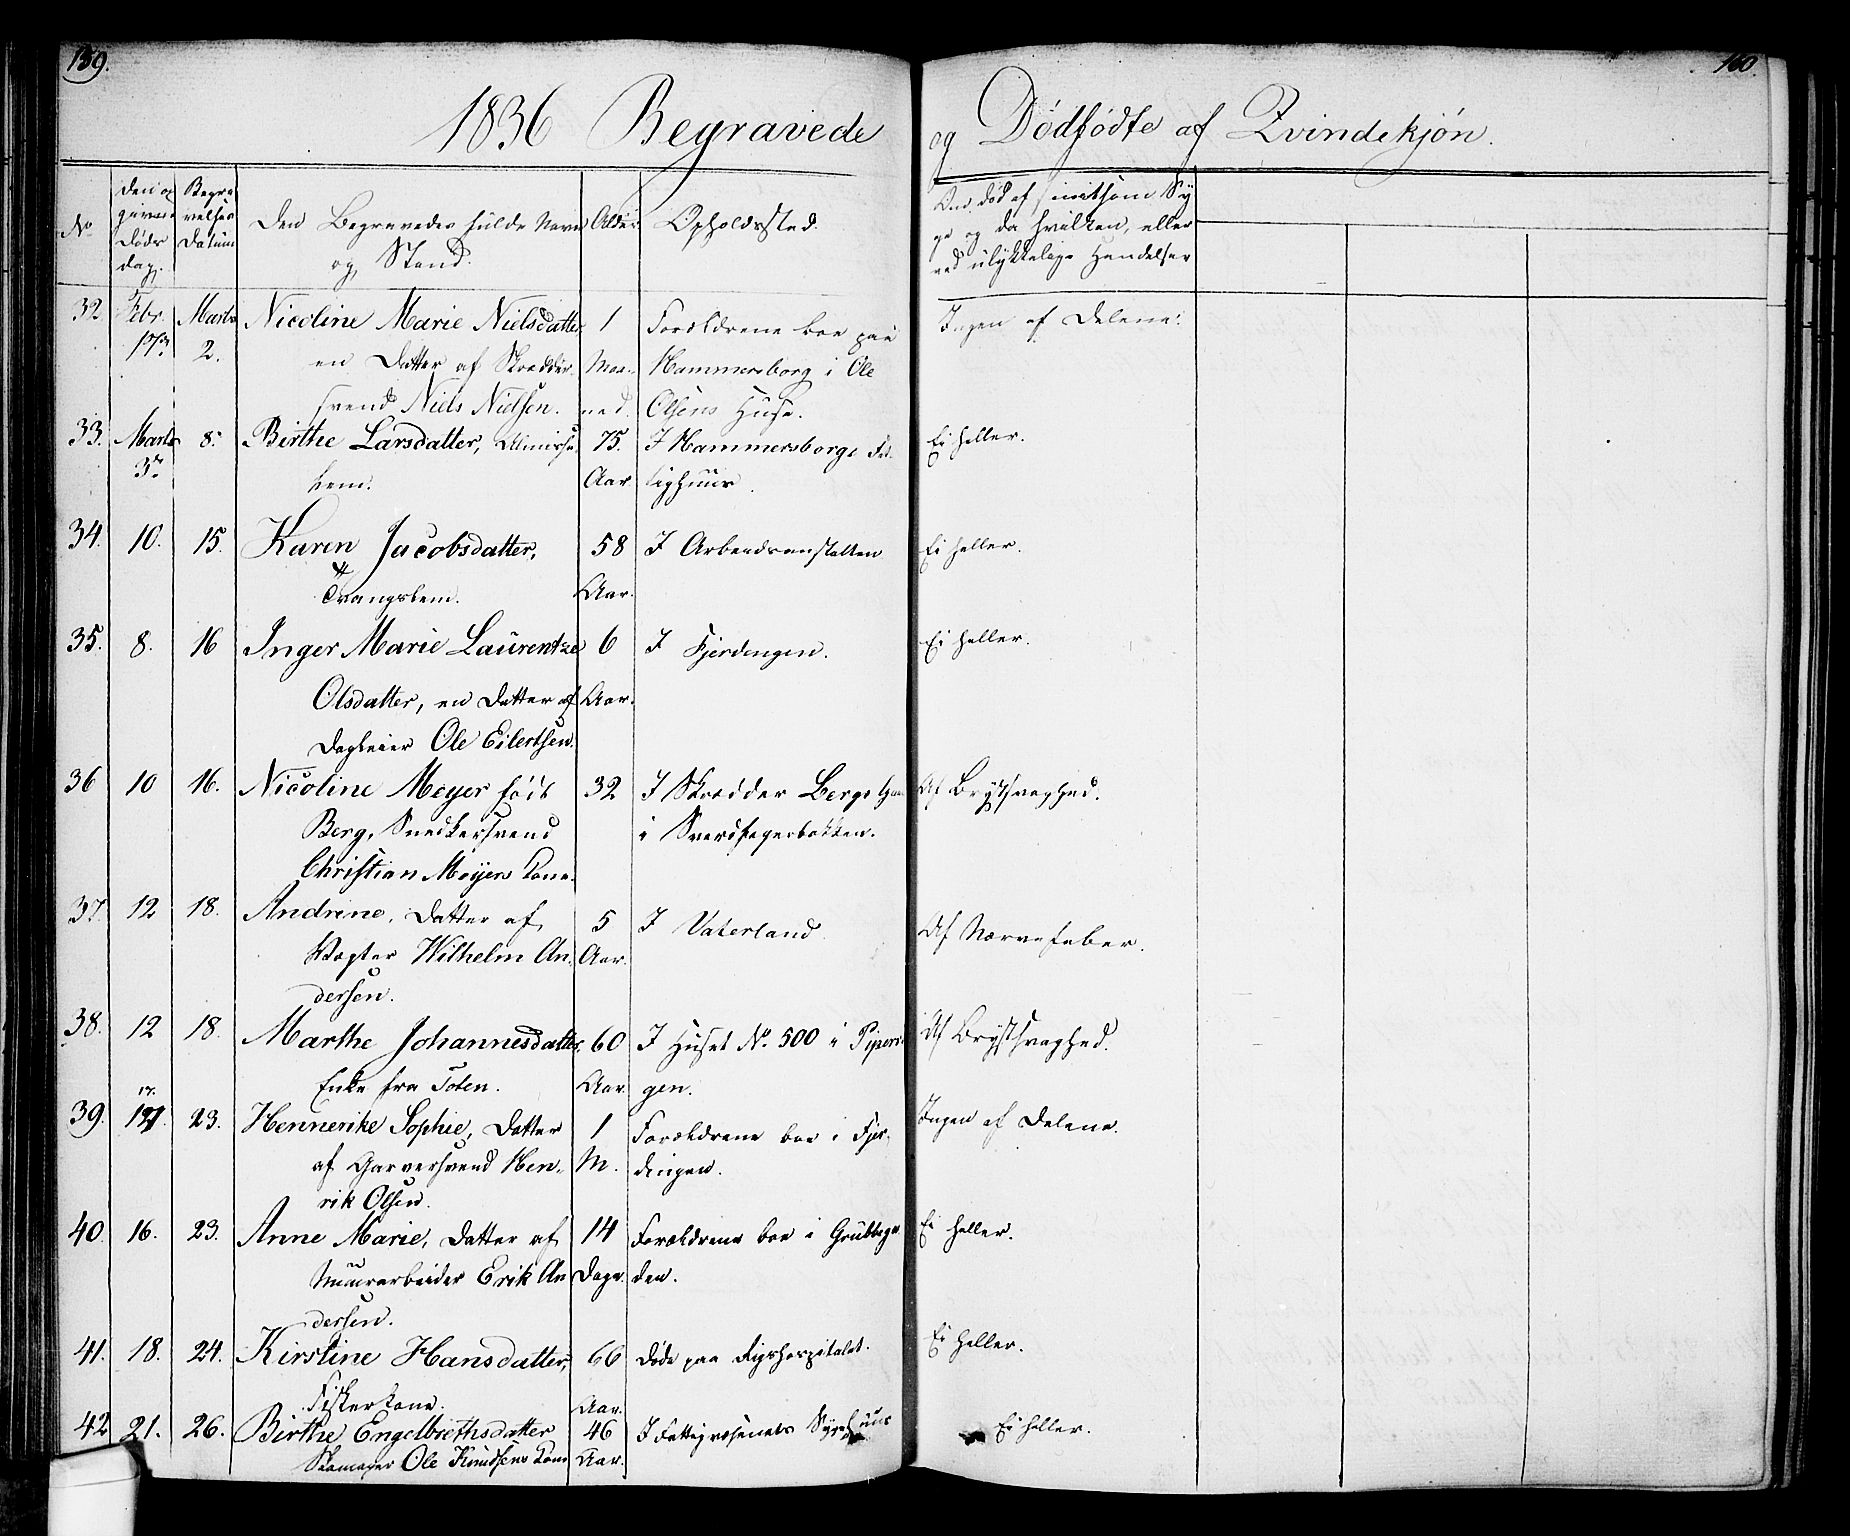 159.
160.
1836 Begravede
og Dødfødte af Qvindekjøn.
No
Den op
givne
Døds
dag.
Begra
velses
Datum
Den Begravedes fulde Navn
og Stand.
Alder.
Opholdssted.
Om død af smitsom Sy
ge og da hvilken, eller
ved ulykkelige Hændelser
32
Febr.
Marts
2.
Nicoline Marie Nielsdatter,
en Datter af Skrædder-
svend Niels Nielsen.
1
Maa-
ned.
Forældrene boe paa
Hammersborg i Ole
Olsens Huse.
Ingen af Delene.
33.
Marts
3de
8.
Birthe Larsdatter, Almisse-
lem.
75.
Aar
I Hammersborgs Fat-
tighuus.
Ei heller.
34.
10.
15.
Karen Jacobsdatter,
Tvangslem.
58
Aar.
I Arbeidsanstalten
Ei heller.
35.
8.
16
Inger Marie Laurentze
Olsdatter, en Datter af
Dagleier Ole Eilertsen.
6
Aar.
I Fjerdingen.
Ei heller.
36
10
16.
Nicoline Meyer født
Berg, Snedkersvend
Christian Meyers Kone.
32
I Skrædder Bergs
i Sverdfegerbakken.
Af Brystsvaghed.
37
12
18.
Andrine, Datter af
Vægter Wilhelm An-
dersen.
5
Aar.
I Vaterland
Af Nærvefeber.
38.
12
18.
Marthe Johannesdatter,
Enke fra Toten.
60
Aar
I Huset No. 500 i Pipervi-
gen.
Af Brystsvaghed.
39.
17.
23.
Hennerike Sophie, Datter
af Garversvend Hen-
rik Olsen.
1
M.
Forældrene boe i Fjer-
dingen.
Ingen af Delene.
40.
16.
23.
Anne Marie, Datter af
Muurarbeider Erik An
dersen.
14
Dage.
Forældrene boe i Grubbega
den.
Ei heller.
41.
18.
24.
Kirstine Hansdatter,
Fiskerkone.
66
Aar.
Døde paa Rigshospitalet.
Ei heller.
42
21.
26.
Birthe Engelbrethsdatter
Skomager Ole Knudsens Kone
46
Aar.
I Fattigvæsenets Sygehuus
Ei heller.